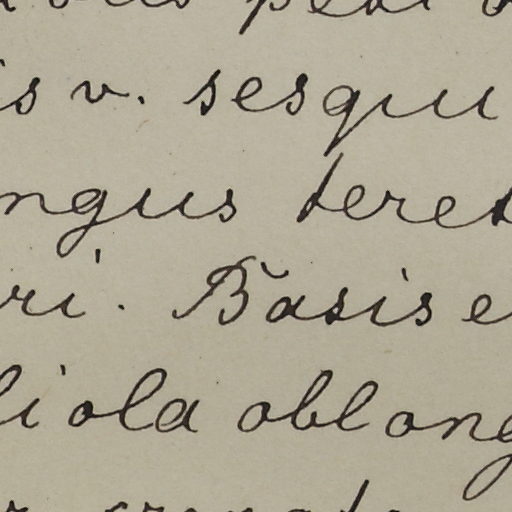 is v. sesqui
ngus teret
ri. Basis e
liola oblong